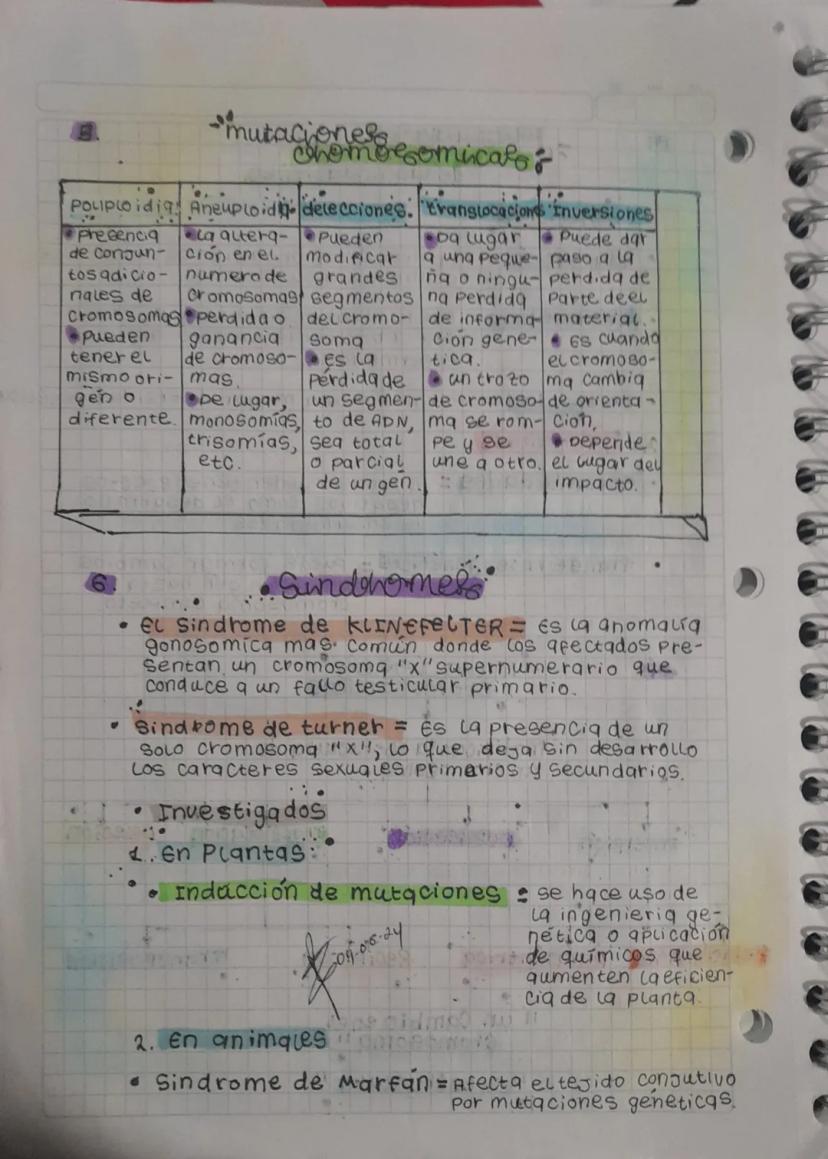 5.
mutaciones
chomosomicas:
Poliploidia:
presencia
de conjun-
tos adicio-
nales de
cromosomas
pueden
tener el
mismo ori-
gen o
diferente.
Aneuploidia:
La altera-
ción en el
numero de
cromosomas
perdida o
ganancia
de cromoso-
mas.
De lugar,
monosomías,
trisomías,
etc.
delecciones.
Pueden
modificar
grandes
segmentos
del cromo-
soma
es la
pérdida de
un segmen-
to de ADN,
sea total
o parcial
de un gen.
translocacions
Da lugar
a una peque-
ña o ningu-
na perdida
de informa-
ción gene-
tica.
un trozo
de cromoso-
ma se rom-
pe y se
une a otro.
Inversiones
Puede dar
paso a la
perdida de
parte de el
material.
Es cuando
el cromoso-
ma cambia
de orienta-
cion,
Depende
el lugar del
impacto.
6.
Sindromes
• El sindrome de KLINEFELTER = Es la anomalía
gonosomica mas común donde los afectados pre-
sentan un cromosoma "x" supernumerario que
conduce a un fallo testicular primario.
• Sindrome de turner = Es la presencia de un
solo cromosoma "x", lo que deja sin desarrollo
los caracteres sexuales primarios y secundarios.
• Investigados
1. En Plantas:
• Inducción de mutaciones = se hace uso de
la ingenieria ge-
nética o aplicación
de químicos que
aumenten la eficien-
cia de la planta.
2. En animales
• Sindrome de Marfán = Afecta el tejido conjutivo
por mutaciones geneticas.